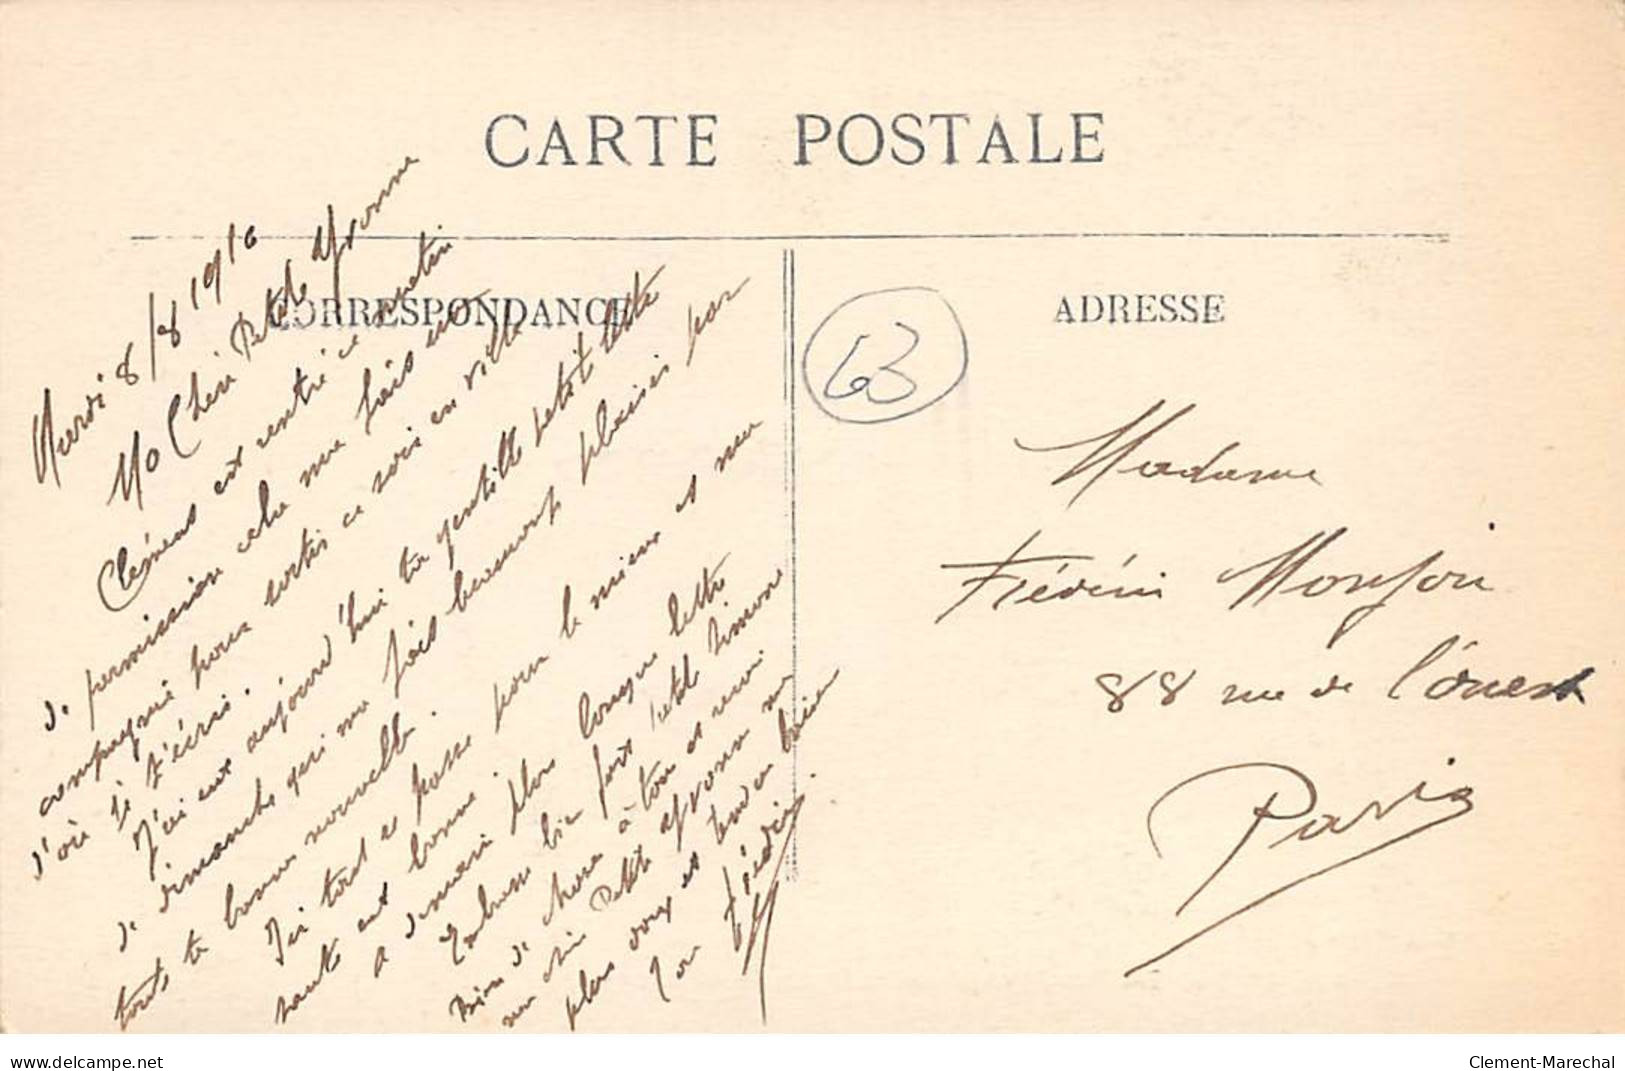 CARTE POSTALE
CORRESPONDANCE
ADRESSE
63
Mardi 8/8 1916
Ma Chéri Petite Yvonne
Clément est rentré ce matin
de permission cela me fais un
compagnie pour sortir ce soir en ville
d'où je t'écris.
J'ai eut aujourd'hui ta gentille petit lettre
de dimanche qui me fais beaucoup plaisir par
toute ta bonne nouvelle.
Ici tout se passe pour le mieux et ma
santé est bonne
a demain plus longue lettre
Embrasse bien fort petite Simone
Bien de chose à tous et recoi
ma chéri Petite Yvonne mes
plus doux et tendre baiser
Ton Frédéric
Madame
Frédéric Monjoin
88 rue de l'ouest
Paris
www.delcampe.net
Clement-Marechal